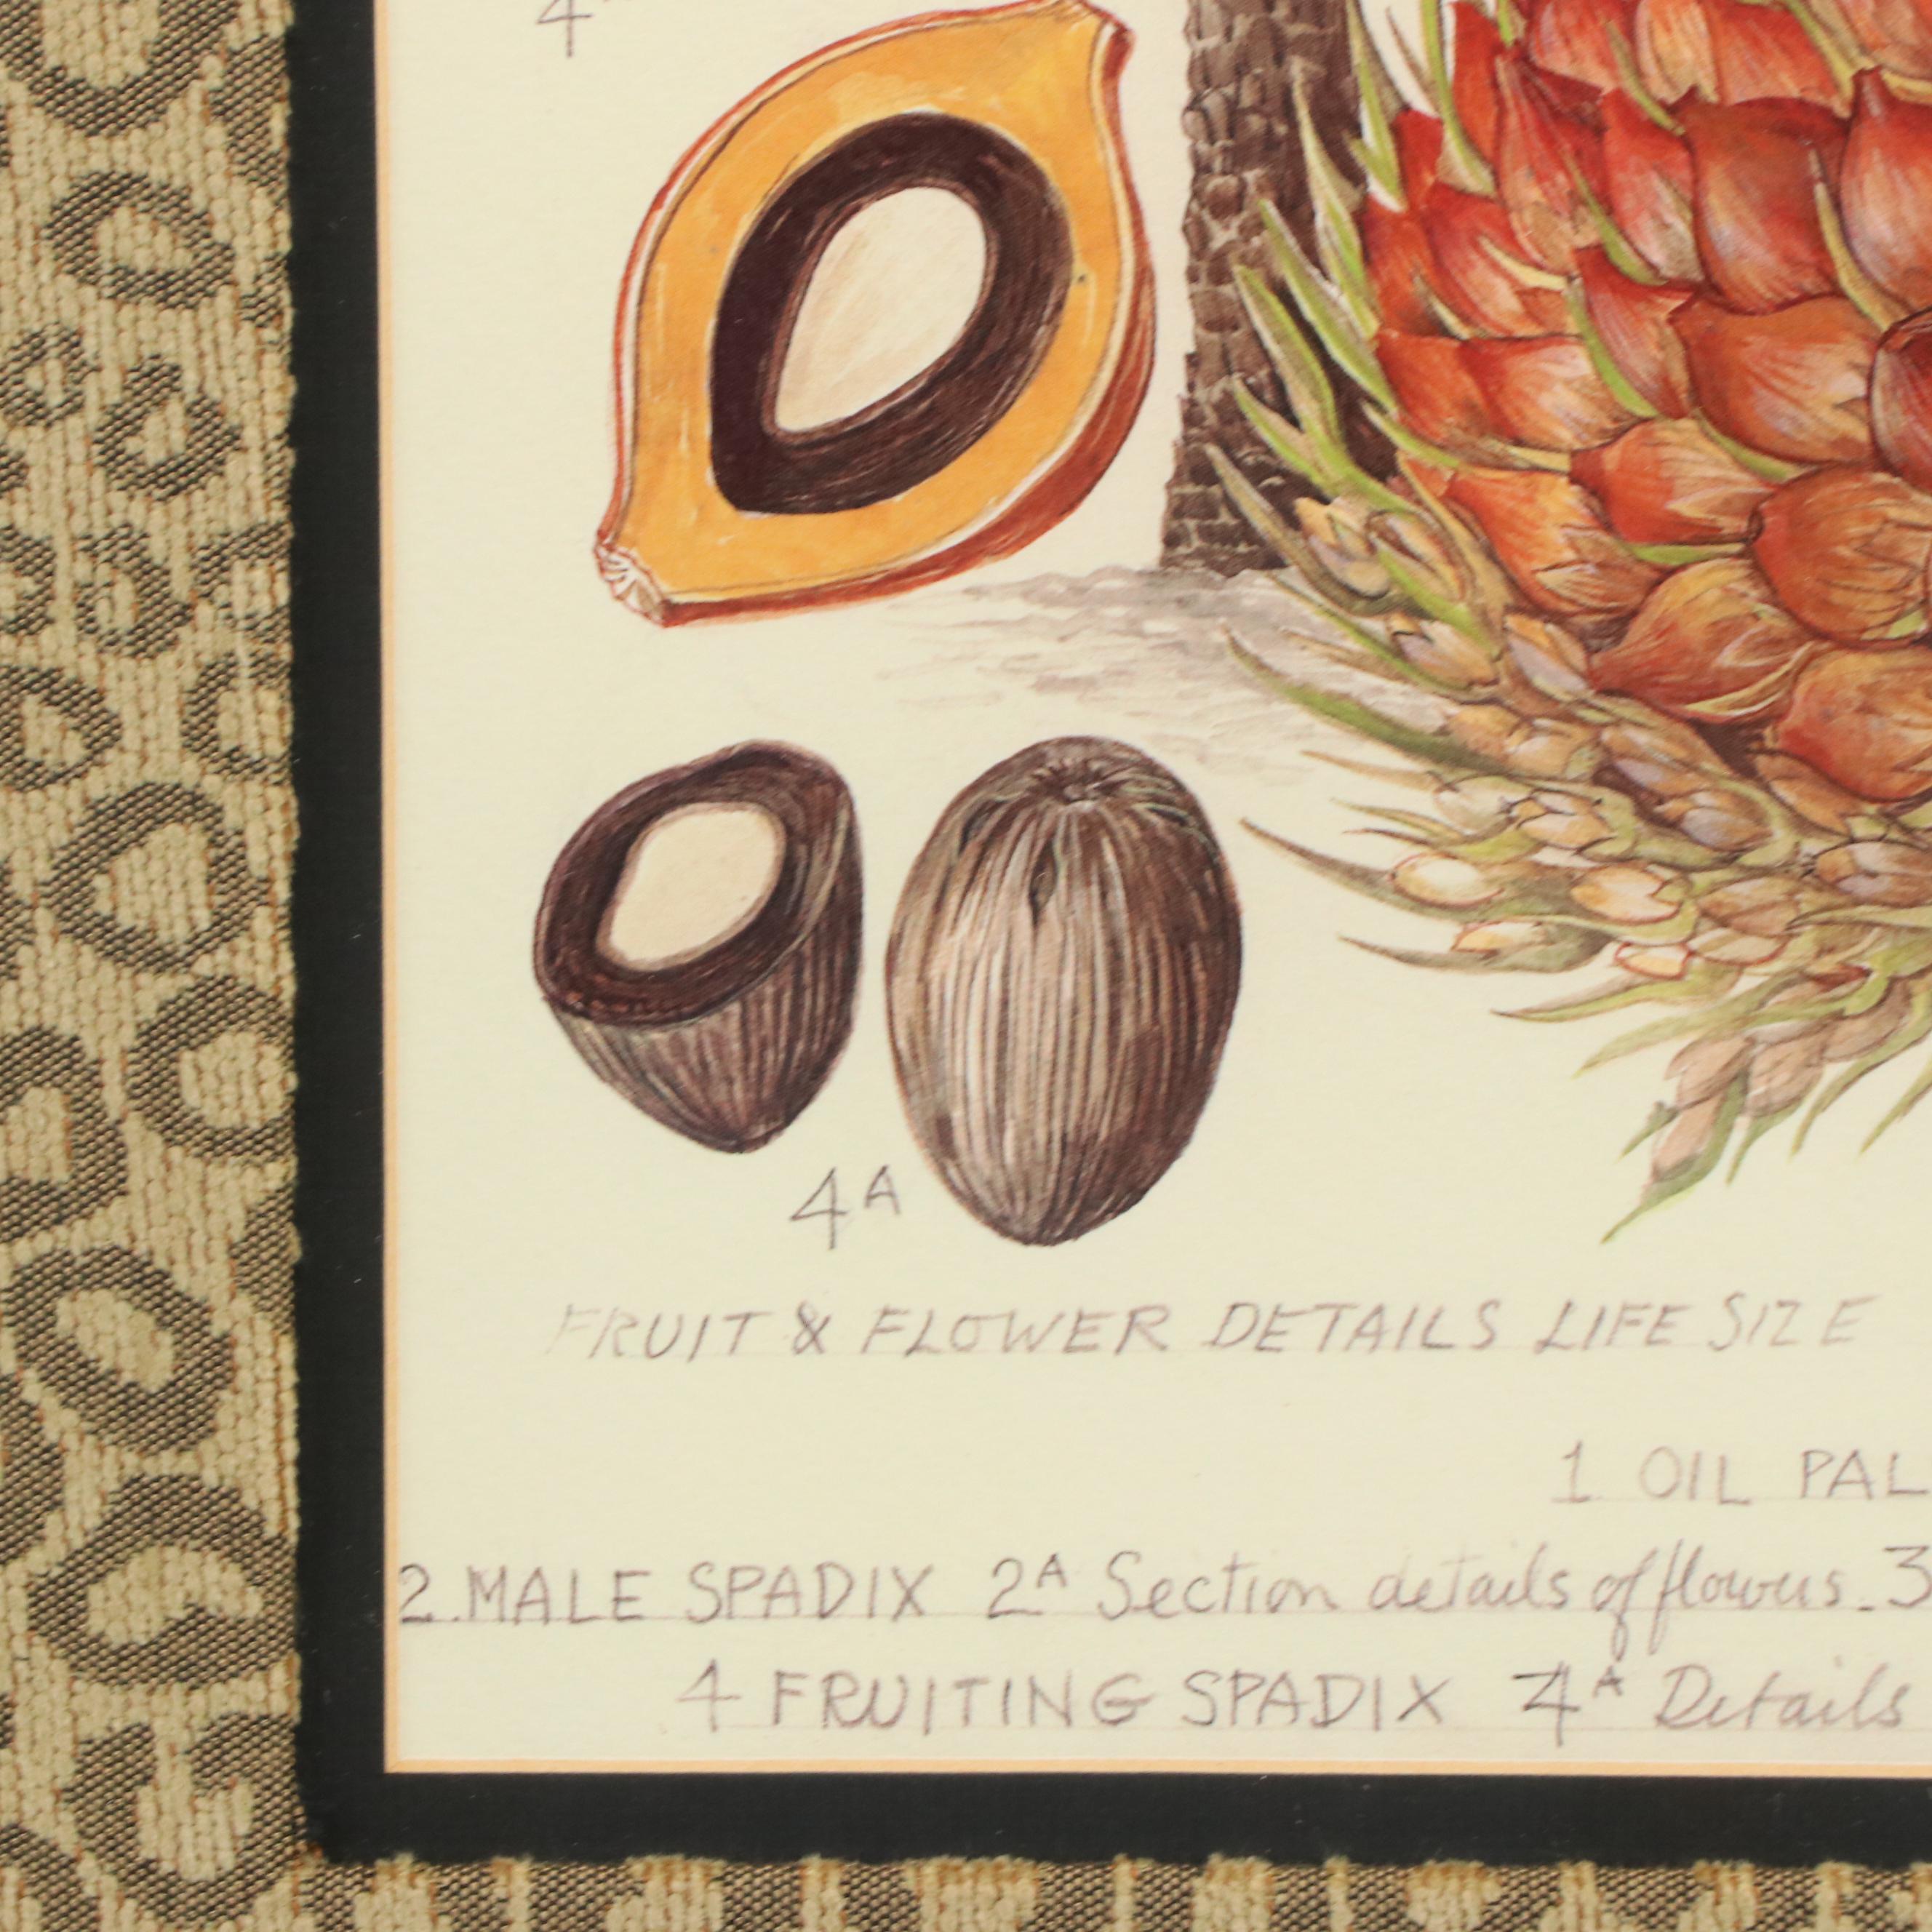 4A
FRUIT & FLOWER DETAILS LIFE SIZE
1 OIL PAL
2. MALE SPADIX 2A Section details of flowers. 3
4 FRUITING SPADIX 4A Details